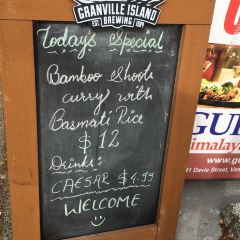 GRANVILLE ISLAND
BREWING
Today's Special
Bamboo Shoots
curry with
Basmati Rice
$ 12
Drinks:
CAESAR $4.99
WELCOME
GU
imalaya
www.gu
41 Davie Street, Van